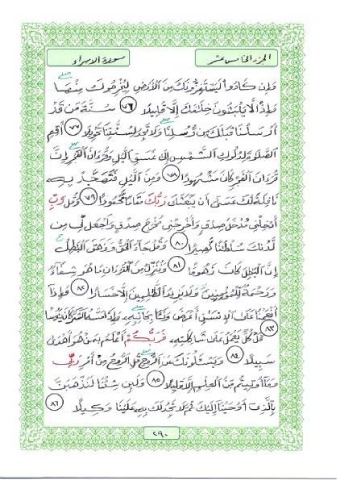 الجزء الخامس عشر
سورة الإسراء
وَإِن كَادُوا۟ لَيَسْتَفِزُّونَكَ مِنَ ٱلْأَرْضِ لِيُخْرِجُوكَ مِنْهَا
وَإِذًا لَّا يَلْبَثُونَ خِلَٰفَكَ إِلَّا قَلِيلًا ٧٦ سُنَّةَ مَن قَدْ
أَرْسَلْنَا قَبْلَكَ مِن رُّسُلِنَا وَلَا تَجِدُ لِسُنَّتِنَا تَحْوِيلًا ٧٧ أَقِمِ
ٱلصَّلَوٰةَ لِدُلُوكِ ٱلشَّمْسِ إِلَىٰ غَسَقِ ٱلَّيْلِ وَقُرْءَانَ ٱلْفَجْرِ إِنَّ
قُرْءَانَ ٱلْفَجْرِ كَانَ مَشْهُودًا ٧٨ وَمِنَ ٱلَّيْلِ فَتَهَجَّدْ بِهِۦ
نَافِلَةً لَّكَ عَسَىٰٓ أَن يَبْعَثَكَ رَبُّكَ مَقَامًا مَّحْمُودًا ٧٩ وَقُل رَّبِّ
أَدْخِلْنِى مُدْخَلَ صِدْقٍ وَأَخْرِجْنِى مُخْرَجَ صِدْقٍ وَٱجْعَل لِّى مِن
لَّدُنكَ سُلْطَٰنًا نَّصِيرًا ٨٠ وَقُلْ جَآءَ ٱلْحَقُّ وَزَهَقَ ٱلْبَٰطِلُ
إِنَّ ٱلْبَٰطِلَ كَانَ زَهُوقًا ٨١ وَنُنَزِّلُ مِنَ ٱلْقُرْءَانِ مَا هُوَ شِفَآءٌ
وَرَحْمَةٌ لِّلْمُؤْمِنِينَ وَلَا يَزِيدُ ٱلظَّٰلِمِينَ إِلَّا خَسَارًا ٨٢ وَإِذَآ
أَنْعَمْنَا عَلَى ٱلْإِنسَٰنِ أَعْرَضَ وَنَـَٔا بِجَانِبِهِۦ وَإِذَا مَسَّهُ ٱلشَّرُّ كَانَ يَـُٔوسًا
٨٣ قُلْ كُلٌّ يَعْمَلُ عَلَىٰ شَاكِلَتِهِۦ فَرَبُّكُمْ أَعْلَمُ بِمَنْ هُوَ أَهْدَىٰ
سَبِيلًا ٨٤ وَيَسْـَٔلُونَكَ عَنِ ٱلرُّوحِ قُلِ ٱلرُّوحُ مِنْ أَمْرِ رَبِّى
وَمَآ أُوتِيتُم مِّنَ ٱلْعِلْمِ إِلَّا قَلِيلًا ٨٥ وَلَئِن شِئْنَا لَنَذْهَبَنَّ
بِٱلَّذِىٓ أَوْحَيْنَآ إِلَيْكَ ثُمَّ لَا تَجِدُ لَكَ بِهِۦ عَلَيْنَا وَكِيلًا ٨٦
٢٩٠